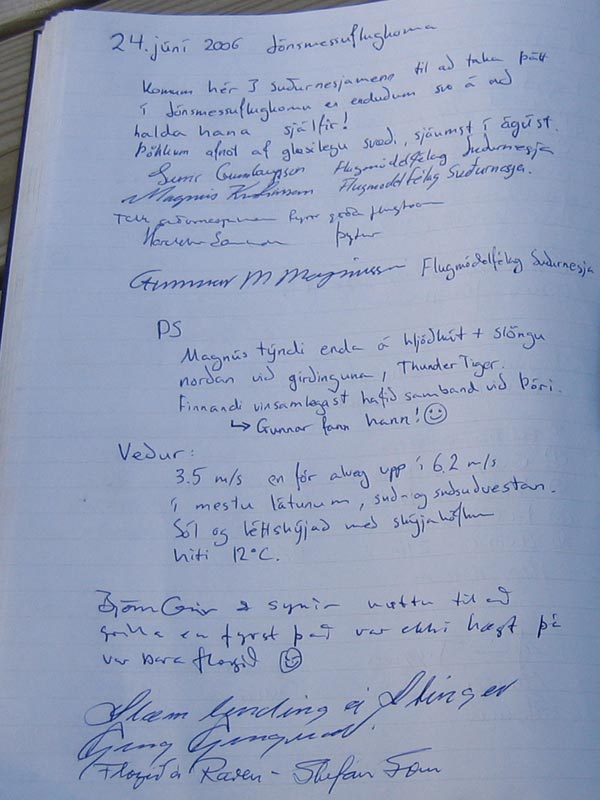 24. júní 2006 Jónsmessuflugkoma
Komum hér 3 Suðurnesjamenn til að taka þátt
í Jónsmessuflugkomu en enduðum svo á að
halda hana sjálfir!
Þökkum afnot af glæsilegu svæði, sjáumst í ágúst.
Flugmódelfélag Suðurnesja
Magnús Kristinsson Flugmódelfélag Suðurnesja.
Takk fyrir góða
Gunnar M Magnússon Flugmódelfélag Suðurnesja
PS
Magnús týndi enda á hljóðkút + slöngu
norðan við girðinguna, Thunder Tiger.
Finnandi vinsamlegast hafið samband við Þóri.
↳ Gunnar fann hann! ☺
Veður:
3.5 m/s en fór alveg upp í 6.2 m/s
í mestu látunum, suð- og suðsuðvestan.
Sól og léttskýjað með skýjahöflum
hiti 12°C.
Björn Geir & synir mættu til að
grilla en fyrst það var ekki hægt þá
var bara flogið ☺
Slæm lending á Stinger
Flogið á Raven - Stefán